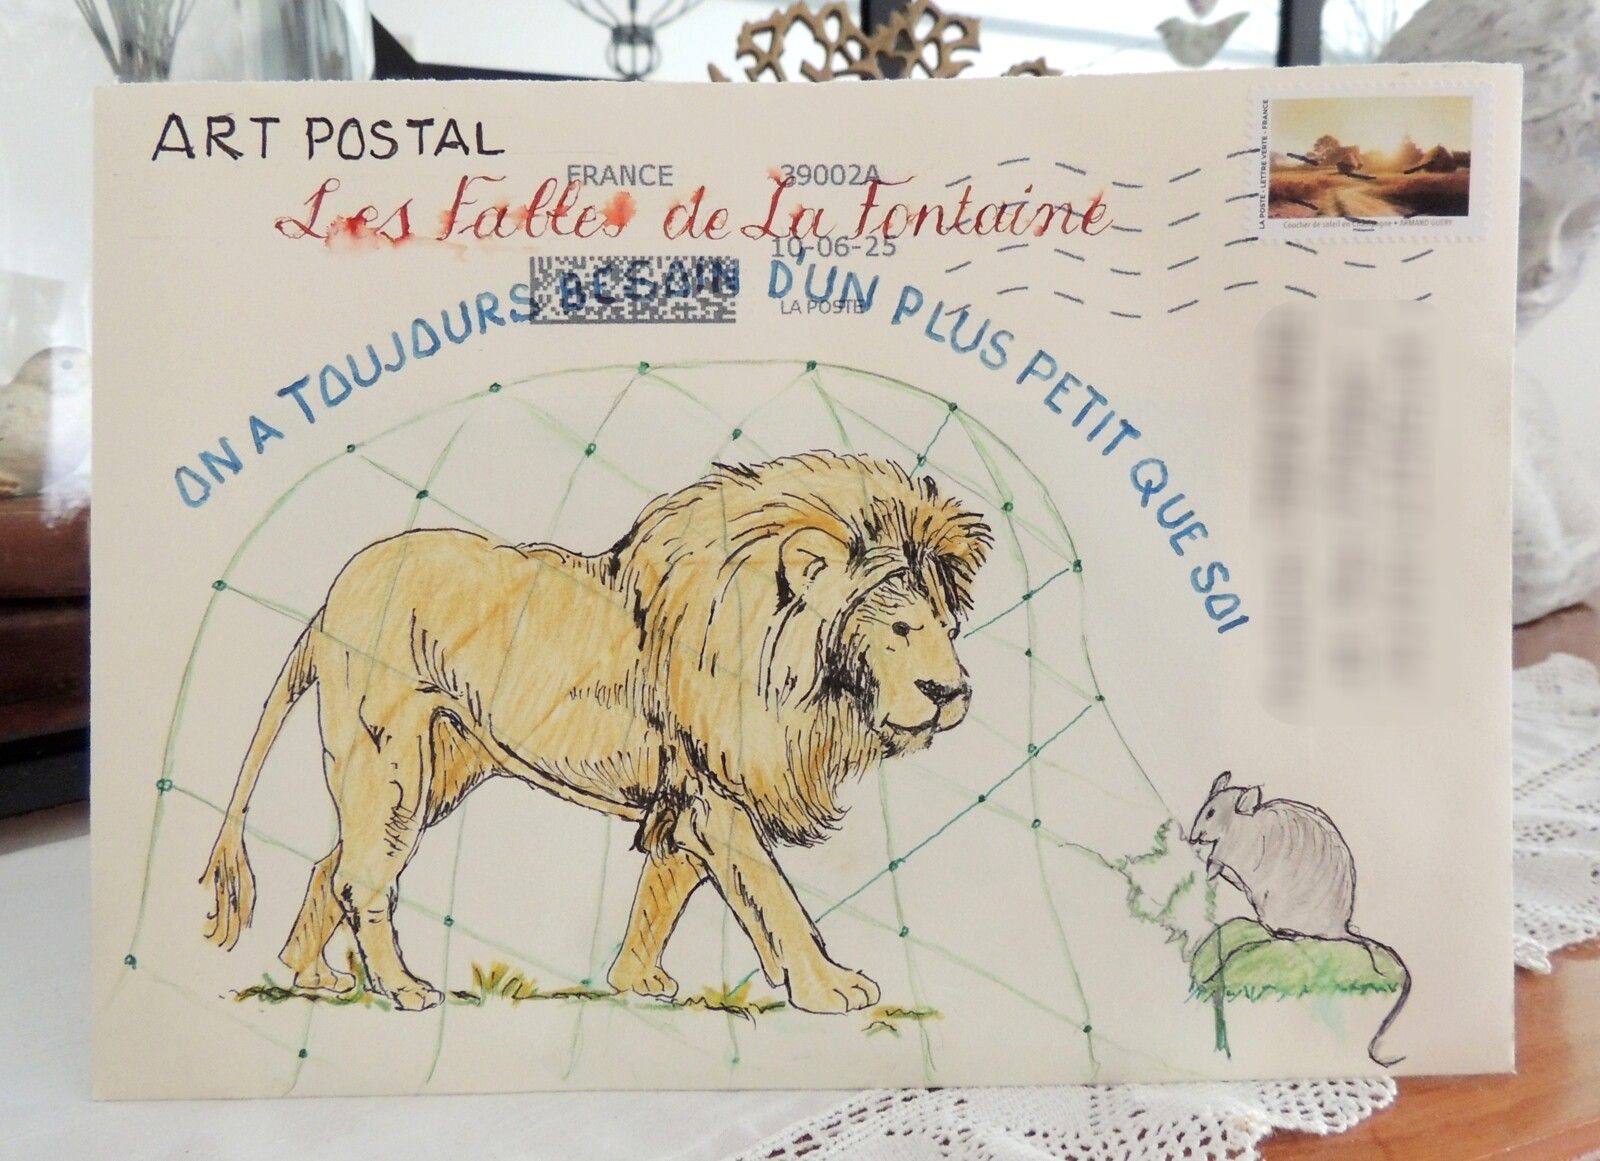 ART POSTAL
FRANCE 39002A
Les Fables de La Fontaine
10-06-25
LA POSTE
ON A TOUJOURS BESOIN D'UN PLUS PETIT QUE SOI
LA POSTE - LETTRE VERTE - FRANCE
Coucher de soleil en Champagne • ARMAND GUÉRY